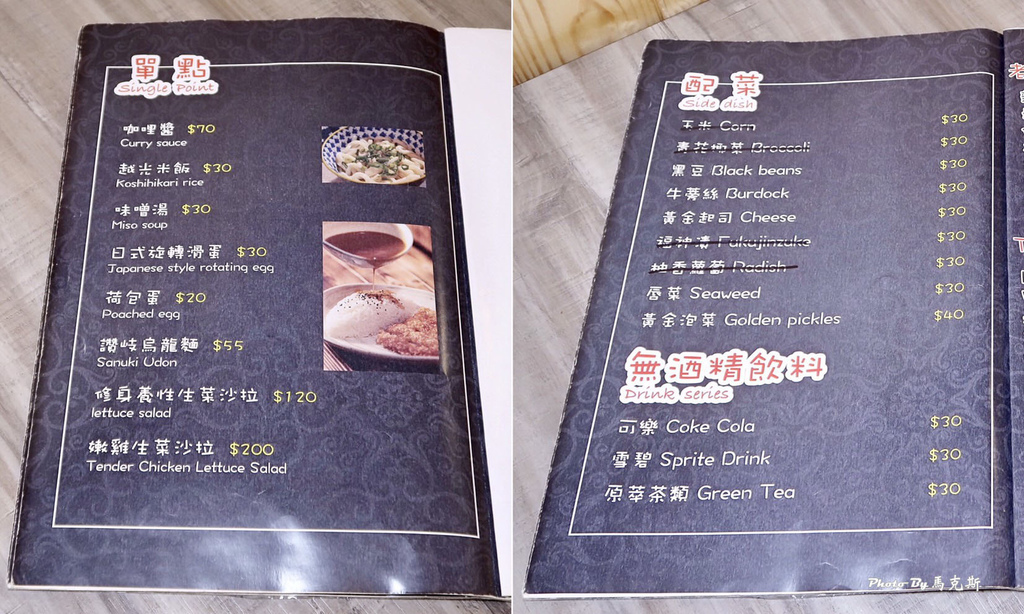 單點
Single Point
咖哩醬 $70
Curry sauce
越光米飯 $30
Koshihikari rice
味噌湯 $30
Miso soup
日式旋轉滑蛋 $30
Japanese style rotating egg
荷包蛋 $20
Poached egg
讚岐烏龍麵 $55
Sanuki Udon
修身養性生菜沙拉 $120
lettuce salad
嫩雞生菜沙拉 $200
Tender Chicken Lettuce Salad
配菜
Side dish
玉米 Corn $30
青花椰菜 Broccoli $30
黑豆 Black beans $30
牛蒡絲 Burdock $30
黃金起司 Cheese $30
福神漬 Fukujinzuke $30
柚香蘿蔔 Radish $30
唇菜 Seaweed $30
黃金泡菜 Golden pickles $40
無酒精飲料
Drink series
可樂 Coke Cola $30
雪碧 Sprite Drink $30
原萃茶類 Green Tea $30
Photo By 馬克斯